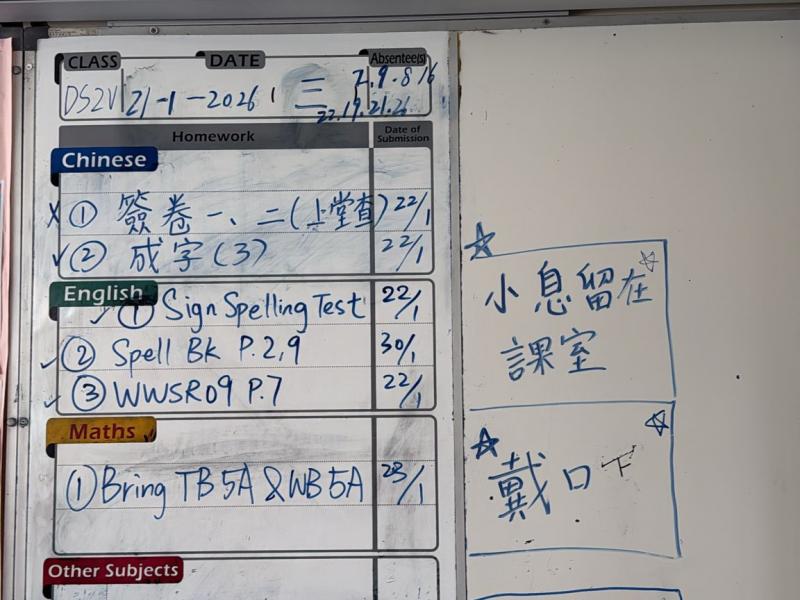 CLASS DATE Absentee(s)
DS2V 21-1-2026 三 2.9.8.16
22.19.21.26
Homework Date of Submission
Chinese
X ① 簽卷一、二(上堂查) 22/1
✓ ② 成字(3) 22/1
English
✓ ① Sign Spelling Test 22/1
✓ ② Spell Bk P.2,9 30/1
✓ ③ WWSR09 P.7 22/1
Maths
① Bring TB 5A & WB 5A 23/1
Other Subjects
小息留在
課室
戴口